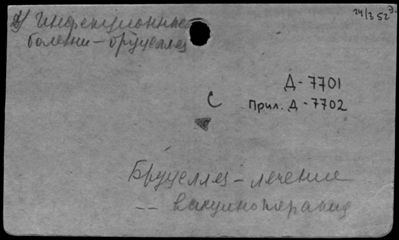 24/3 52 г.
2/ Инфекционные
болезни - бруцеллез
Д - 7701
С
Прил. Д - 7702
Бруцеллез - лечение
-- вакцинотерапия